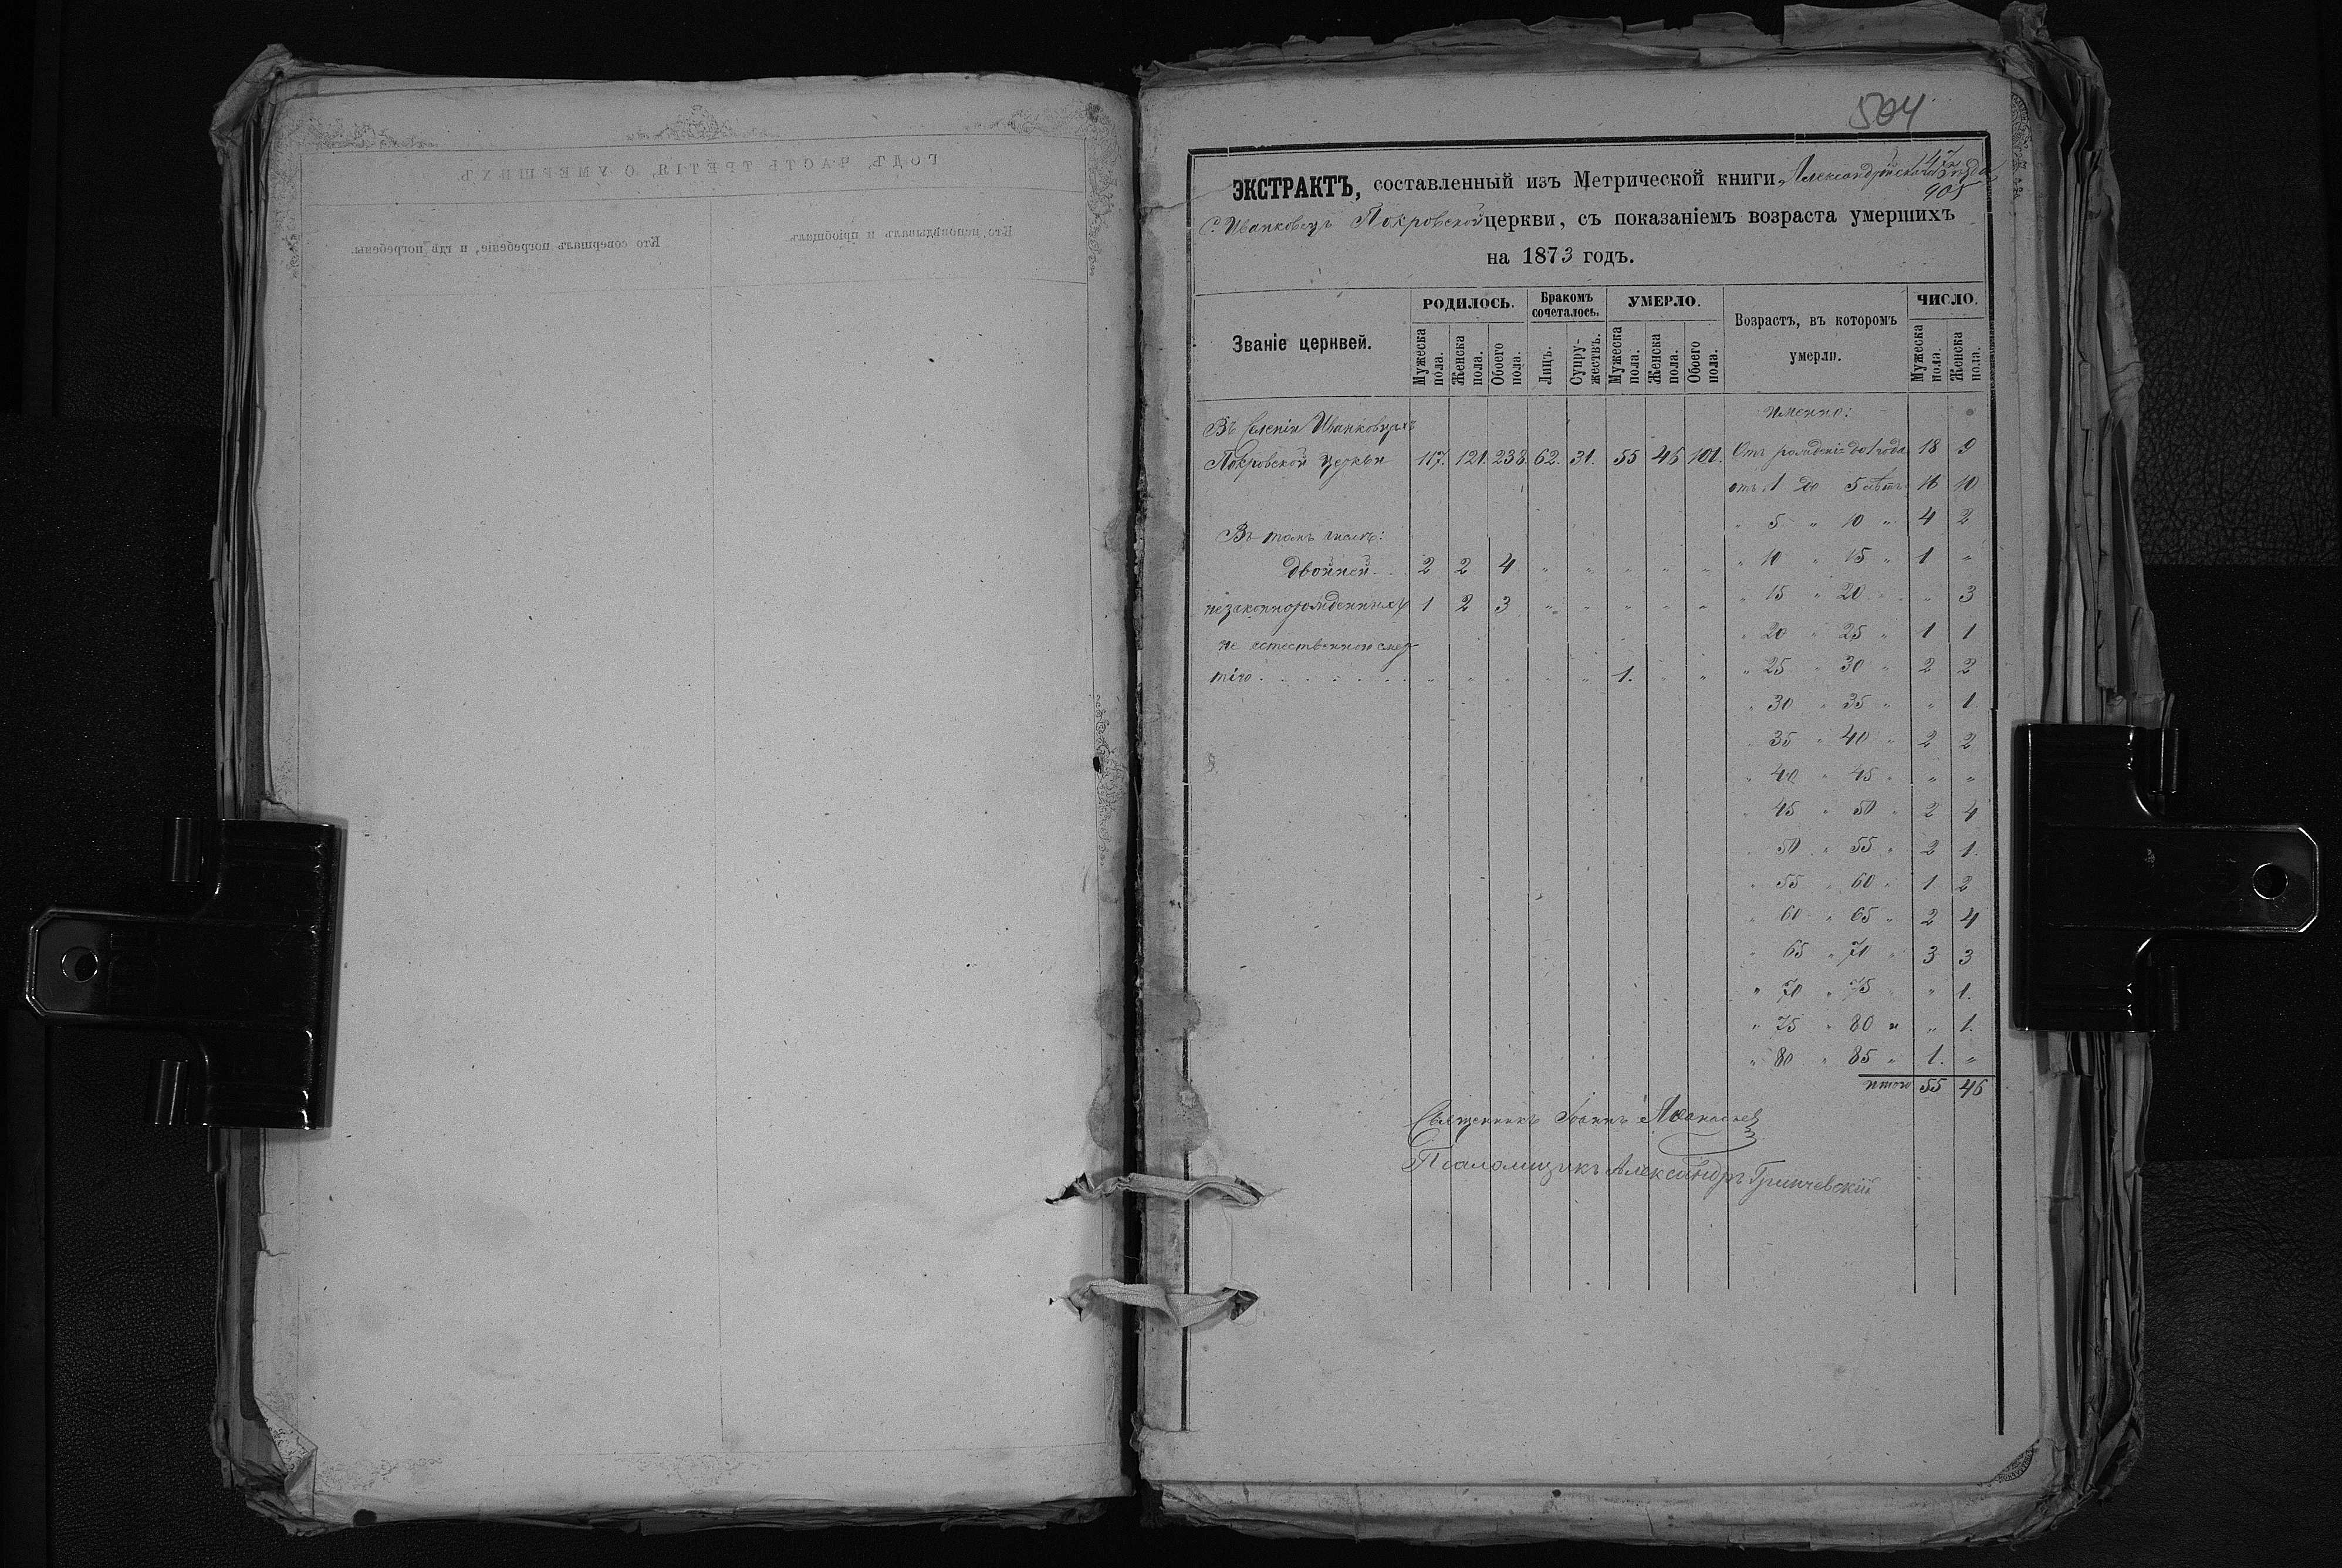 504
147
405
ЭКСТРАКТЪ, составленный изъ Метрической книги, Александрійскаго уѣзда
С. Иванковецъ Покровской церкви, съ показаніемъ возраста умершихъ
на 1873 годъ.
Званіе церквей.
РОДИЛОСЬ.
Бракомъ сочеталось.
УМЕРЛО.
Возрастъ, въ которомъ умерли.
ЧИСЛО.
Мужеска пола. Женска пола. Обоего пола. Лицъ. Супружествъ. Мужеска пола. Женска пола. Обоего пола. Мужеска пола. Женска пола.
Именно:
Въ Селеніи Иванковцахъ
Покровской церкви 117. 121. 238. 62. 31. 55 46 101. Отъ рожденія до 1 года 18 9
отъ 1 до 5 лѣтъ 16 10
" 5 " 10 " 4 2
Въ томъ числѣ:
двойней 2 2 4 " " " " " " 10 " 15 " 1 "
незаконнорожденныхъ 1 2 3 " " " " " " 15 " 20 " " 3
не естественною смер-
" 20 " 25 " 1 1
тію " " " " " 1. " " " 25 " 30 " 2 2
" 30 " 35 " " 1
" 35 " 40 " 2 2
" 40 " 45 " " "
" 45 " 50 " 2 4
" 50 " 55 " 2 1.
" 55 " 60 " 1 2
" 60 " 65 " 2 4
" 65 " 70 " 3 3
" 70 " 75 " " 1.
" 75 " 80 " " 1.
" 80 " 85 " 1. "
итого 55 46
Священникъ Іоаннъ Аѳанасьев
Псаломщикъ Александръ Гринчевскій
ГОДЪ, ЧАСТЬ ТРЕТІЯ, О УМЕРШИХЪ
Кто исповѣдывалъ и пріобщалъ
Кто совершалъ погребеніе, и гдѣ погребены.